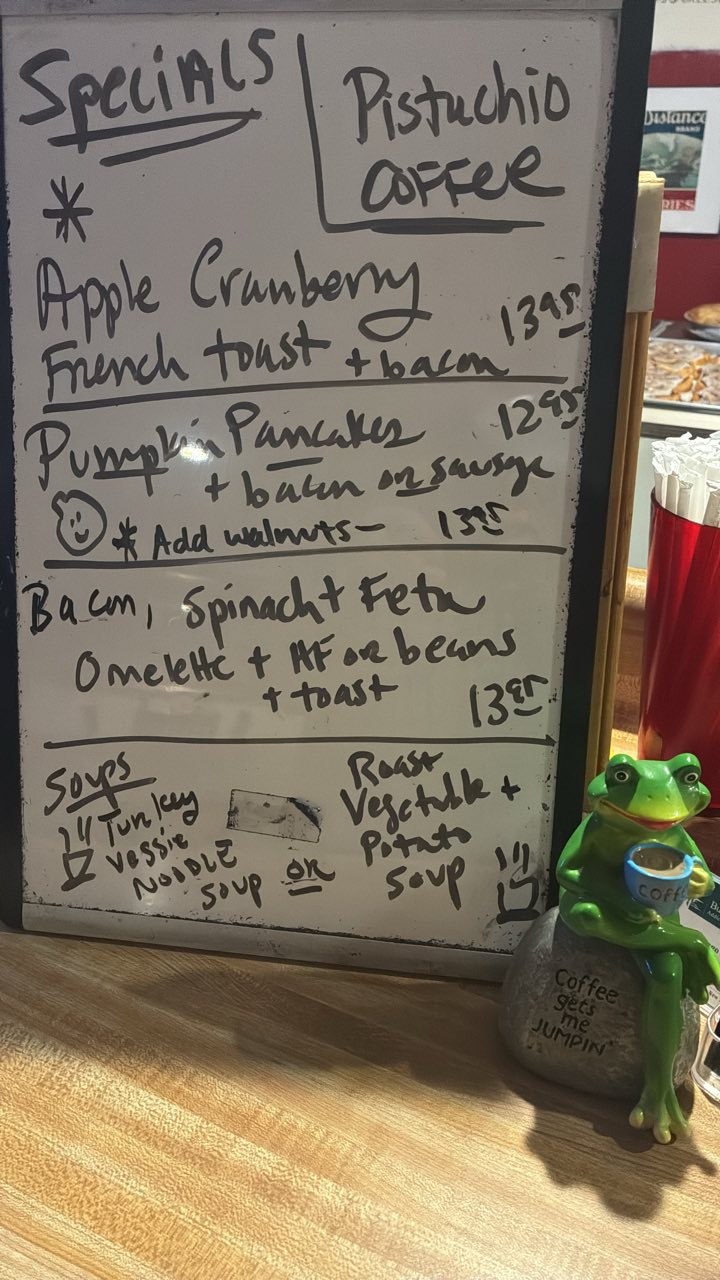 Specials
Pistachio
Coffee
*
Apple Cranberry
French toast + bacon 13.95
Pumpkin Pancakes 12.95
+ bacon or sausage
* Add walnuts - 13.95
Bacon, Spinach + Feta
Omelette + HF or beans
+ toast 13.95
Soups
Turkey
Veggie
NOODLE
Soup or
Roast
Vegetable +
Potato
Soup
COFF
Coffee
gets
me
JUMPIN'
Distance
BRAND
RIES